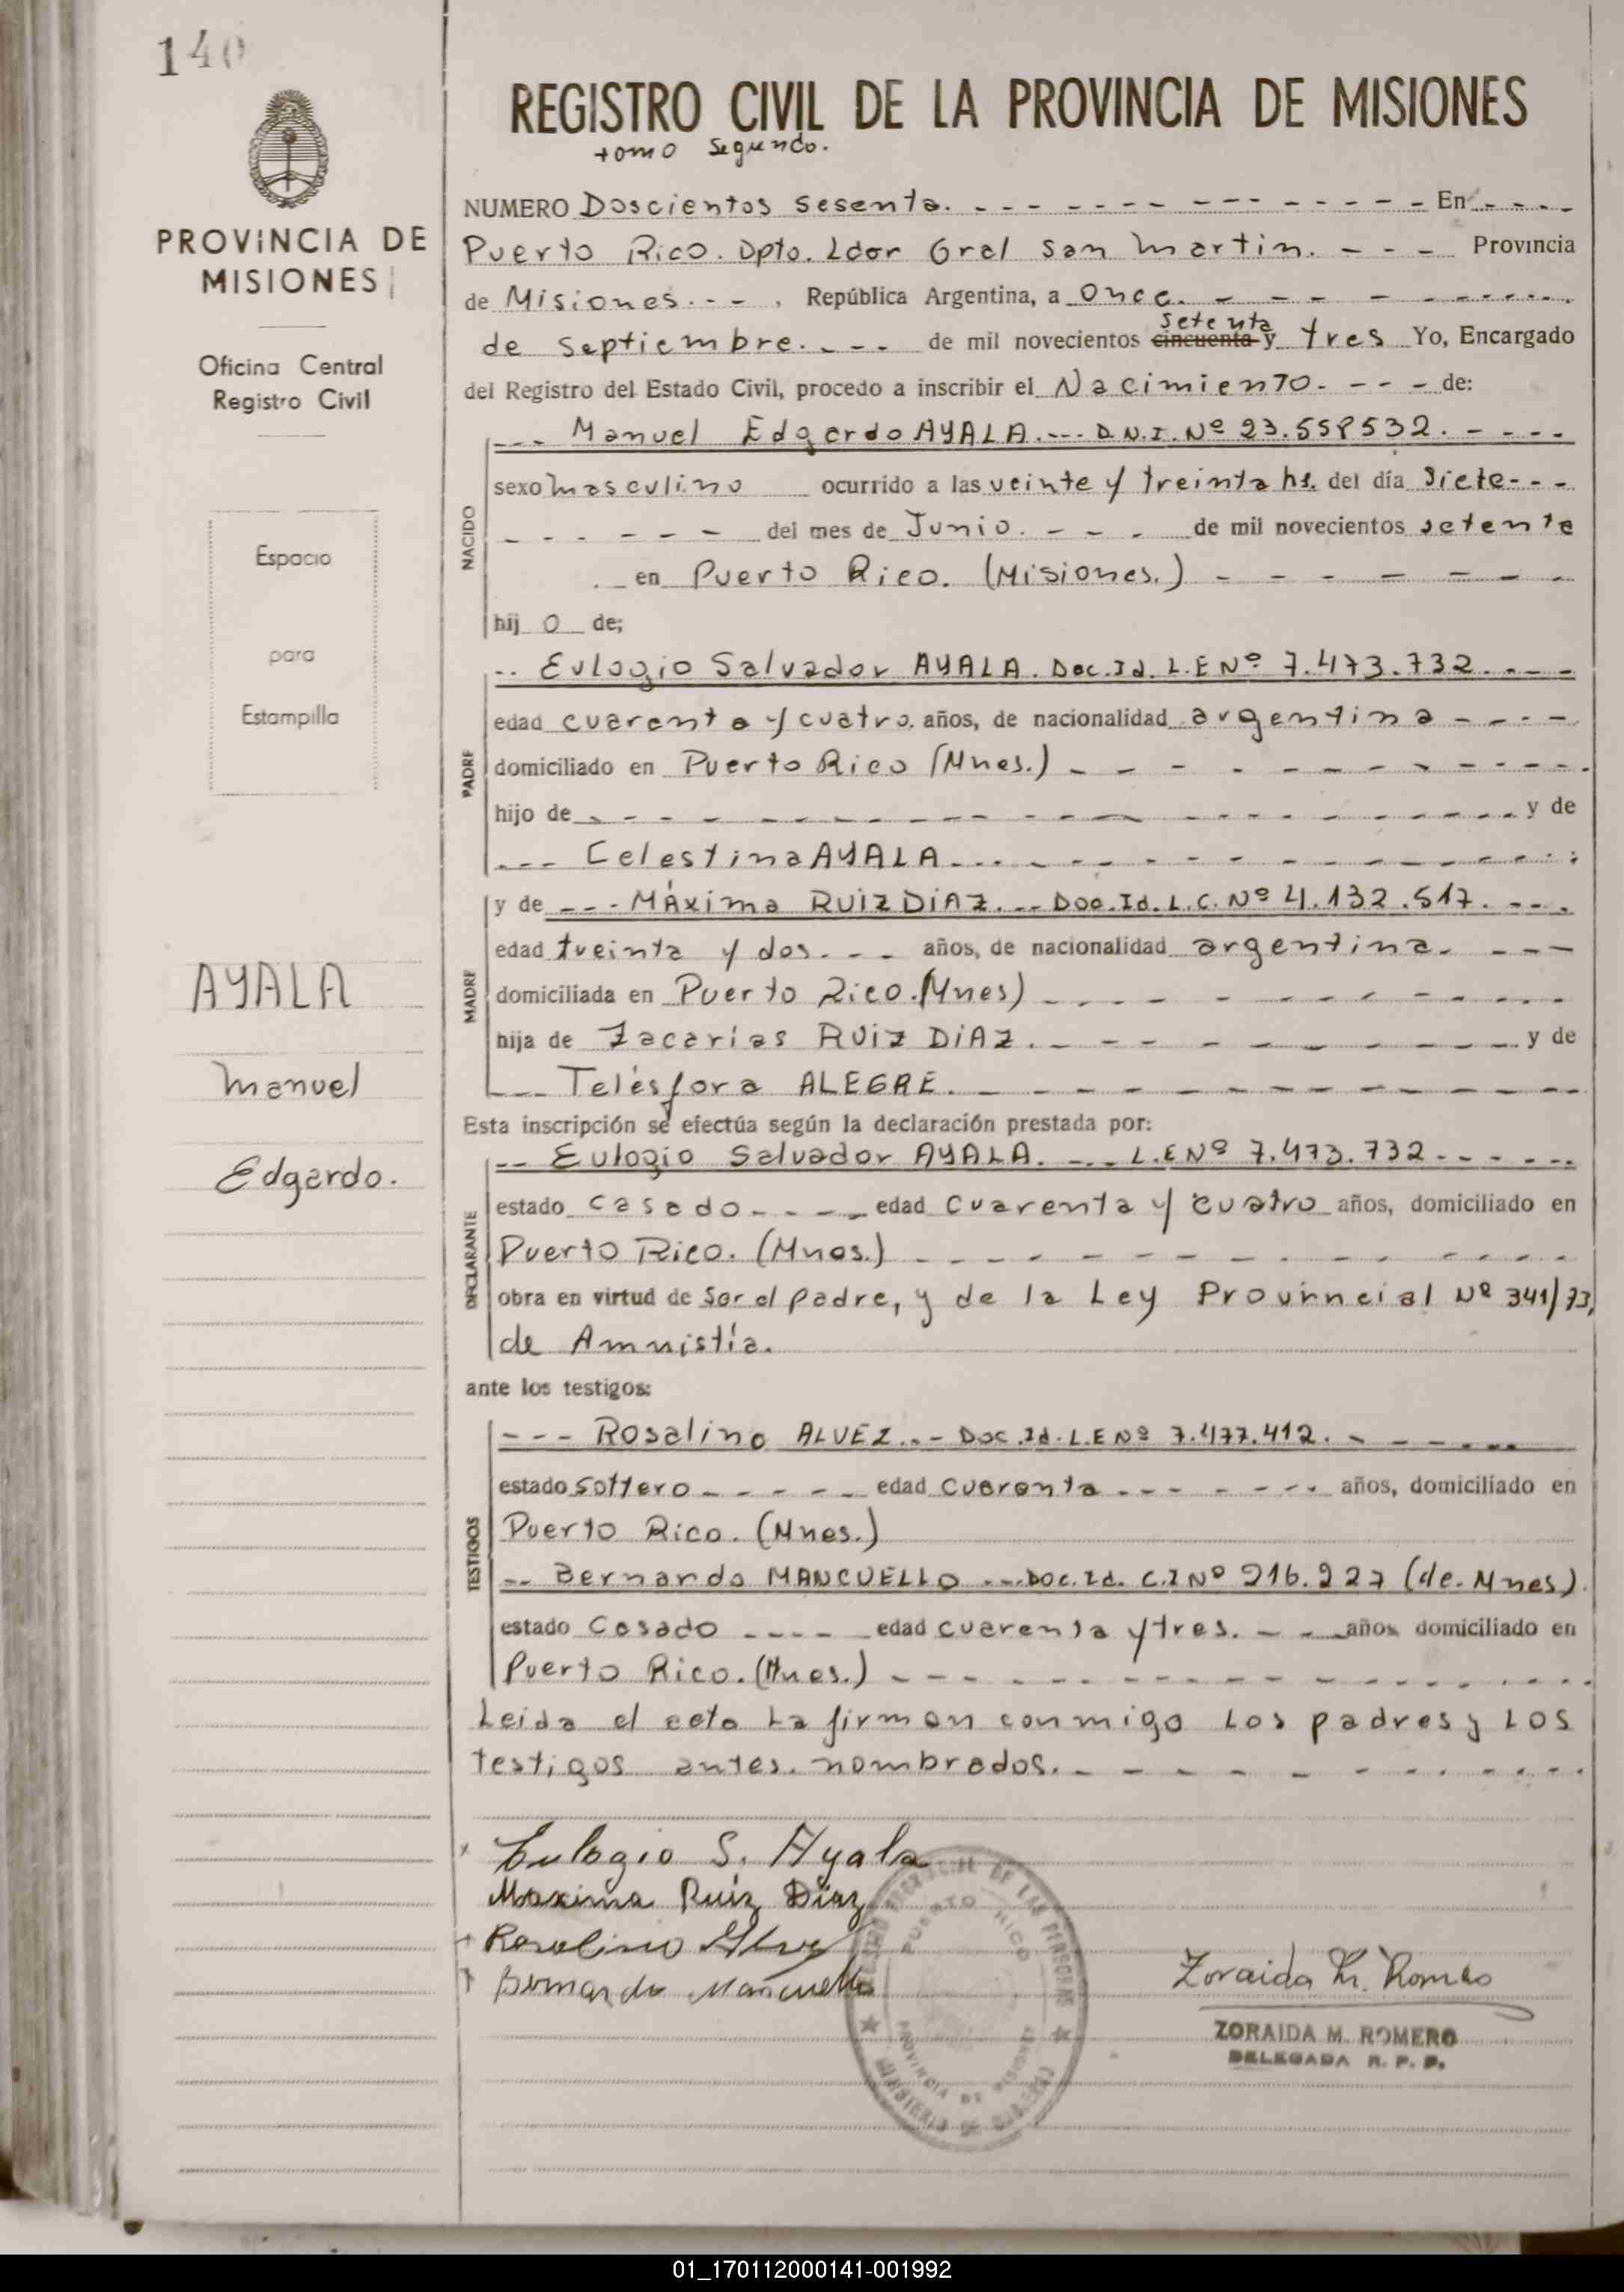 140
REGISTRO CIVIL DE LA PROVINCIA DE MISIONES
tomo Segundo.
PROVINCIA DE
MISIONES
Oficina Central
Registro Civil
Espacio
para
Estampilla
AYALA
Manuel
Edgardo.
NUMERO Doscientos sesenta. - - - En - - -
Puerto Rico. Dpto. Ldor Gral San Martin. - - - Provincia
de Misiones. - - , República Argentina, a Once. - - -
de Septiembre. - - - de mil novecientos cincuenta y setenta tres Yo, Encargado
del Registro del Estado Civil, procedo a inscribir el Nacimiento. - - - de:
NACIDO
--- Manuel Edgardo AYALA. --- D.N.I. Nº 23.558532. - - - -
sexo masculino ocurrido a las veinte y treinta hs. del día Siete - - -
- - - - - - del mes de Junio. - - - de mil novecientos setenta
en Puerto Rico. (Misiones.) - - - - - - -
hij o de;
PADRE
-- Eulogio Salvador AYALA. Doc. Id. L.E Nº 7.473.732. - - -
edad cuarenta y cuatro. años, de nacionalidad argentina - - - -
domiciliado en Puerto Rico (Mnes.) - - - - - -
hijo de - - - - - - y de
--- Celestina AYALA - - - - - -
MADRE
y de --- Máxima RUIZ DIAZ. -- Doc. Id. L.C. Nº 4.132.517. - - -
edad treinta y dos. - - años, de nacionalidad argentina. - - -
domiciliada en Puerto Rico. (Mnes) - - - - - -
hija de Zacarías RUIZ DIAZ. - - - - - - y de
--- Telésfora ALEGRE. - - - - - -
Esta inscripción se efectúa según la declaración prestada por:
DECLARANTE
-- Eulogio Salvador AYALA. --- L.E Nº 7.473.732 - - - - -
estado casado - - - - edad cuarenta y cuatro años, domiciliado en
Puerto Rico. (Mnes.) - - - - - -
obra en virtud de Ser el padre, y de la Ley Provinncial Nº 341/73,
de Amnistía.
ante los testigos:
TESTIGOS
--- Rosalino ALVEZ. -- Doc. Id. L.E Nº 7.477.412. - - - -
estado soltero - - - - - edad cuarenta - - - - - años, domiciliado en
Puerto Rico. (Mnes.)
-- Bernardo MANCUELLO --- Doc. Id. C.I Nº 216.227 (de. Mnes).
estado Casado - - - - edad cuarenta y tres. - - años domiciliado en
Puerto Rico. (Mnes.) - - - - - -
Leida el acta La firman conmigo Los padres y Los
testigos antes. nombrados. - - - - - -
Eulogio S. Ayala
Maxima Ruiz Diaz
Rosalino Alvez
Bernardo Mancuello
DE LAS PERSONAS
PUERTO RICO
PROVINCIA DE MISIONES
Zoraida M. Romero
ZORAIDA M. ROMERO
DELEGADA R. P. P.
01_170112000141-001992